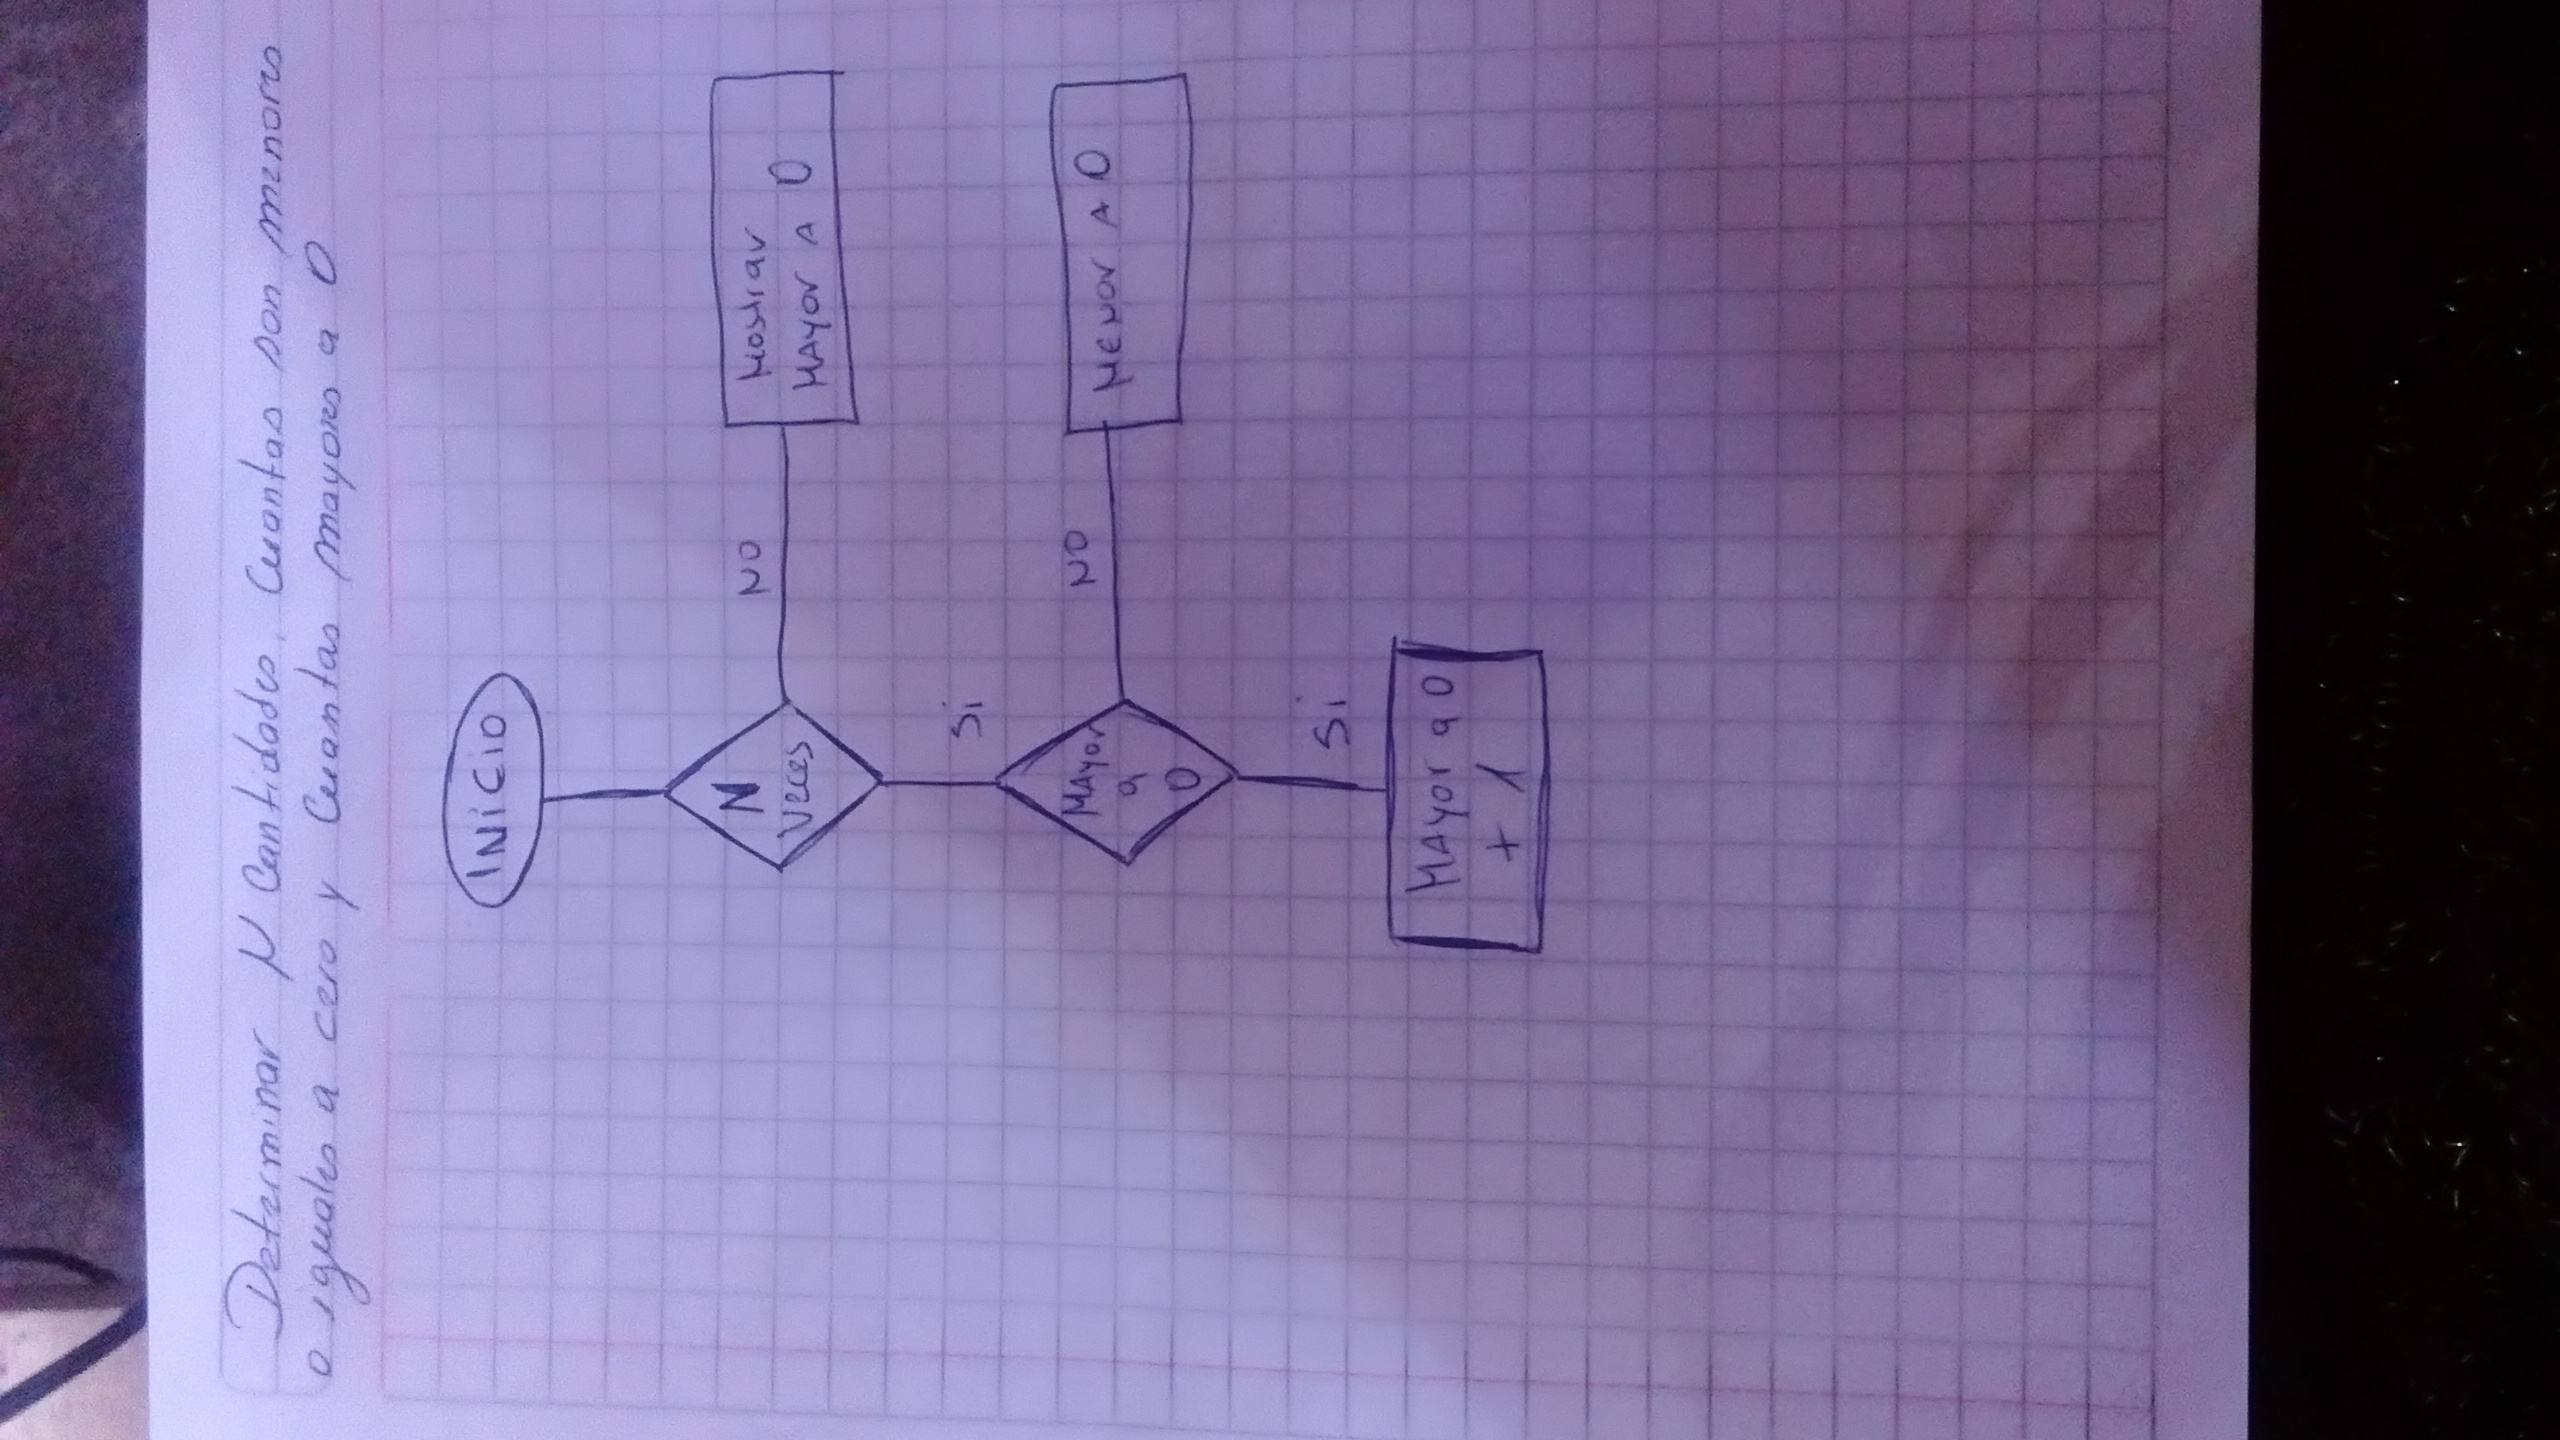 Determinar N Cantidades, Cuantas son menores
o iguales a cero y Cuantas mayores a 0
INICIO
N
Veces
NO
Mostrar
MAyor A 0
Si
MAyor
a
0
NO
MENOr A 0
Si
MAyor a 0
+ 1